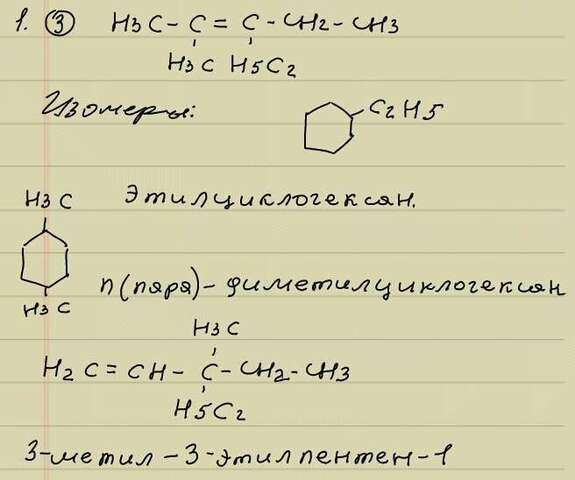 1. ③ H3C - C = C - CH2 - CH3
H3C H5C2
Изомеры:
C2H5
H3C
Этилциклогексан.
п(пара) - диметилциклогексан
H3C
H3C
H2C = CH - C - CH2 - CH3
H5C2
3-метил - 3-этилпентен-1